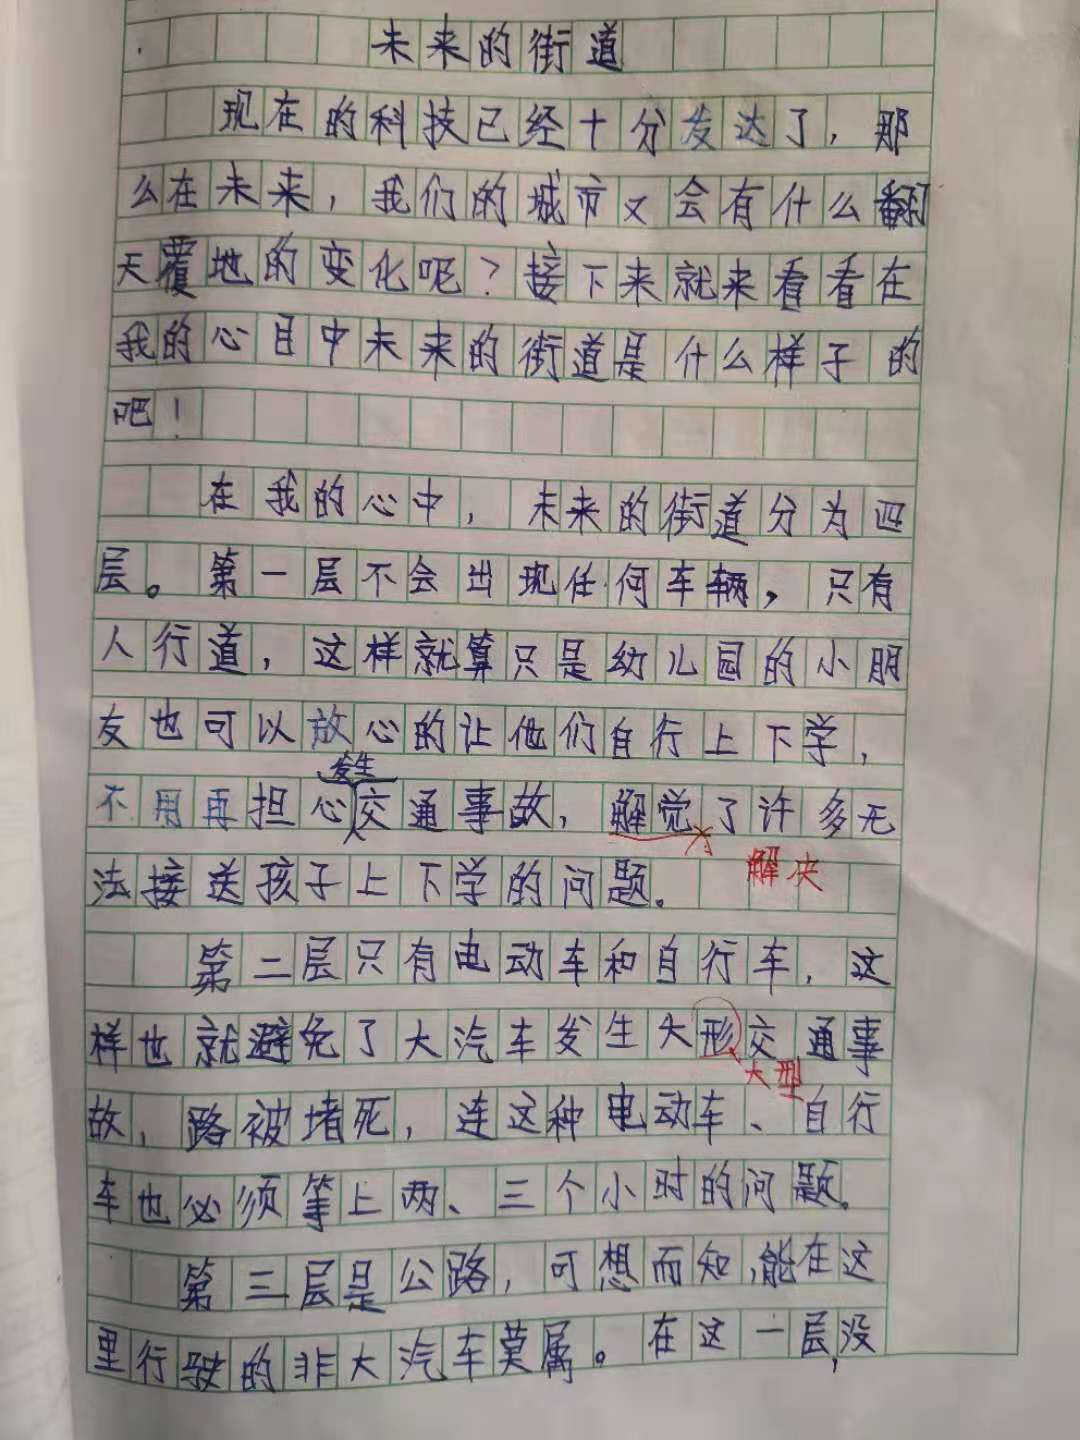 未来的街道
现在的科技已经十分发达了，那
么在未来，我们的城市又会有什么翻
天覆地的变化呢？接下来就来看看在
我的心目中未来的街道是什么样子的
吧！
在我的心中，未来的街道分为四
层。第一层不会出现任何车辆，只有
人行道，这样就算只是幼儿园的小朋
友也可以放心的让他们自行上下学，
发生
不用再担心交通事故，解觉了许多无
解决
法接送孩子上下学的问题。
第二层只有电动车和自行车，这
样也就避免了大汽车发生大形交通事
大型
故，路被堵死，连这种电动车、自行
车也必须等上两、三个小时的问题。
第三层是公路，可想而知，能在这
里行驶的非大汽车莫属。在这一层，没